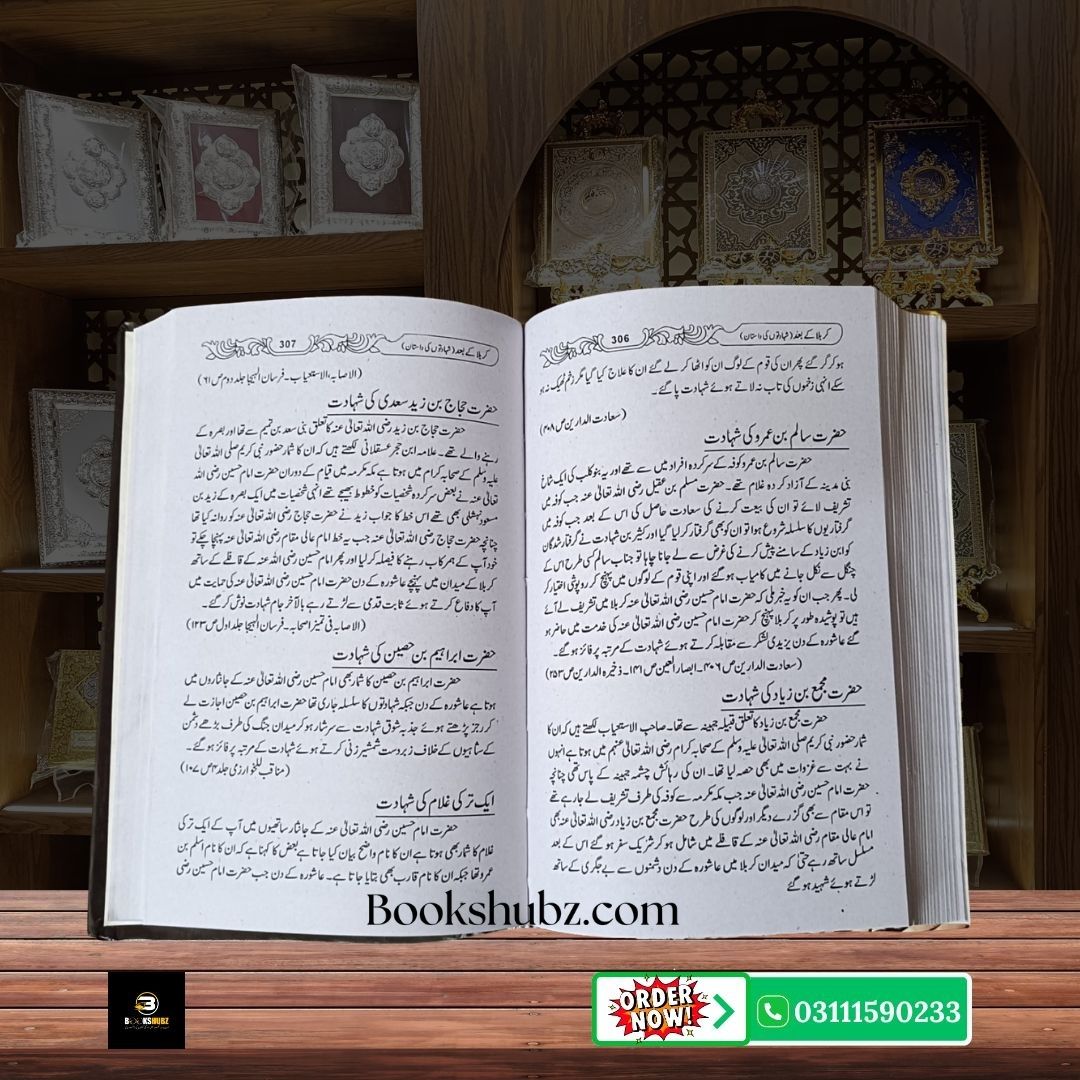 کربلا کے بعد (شہادتوں کی داستان)
306
ہو کر گر گئے پھر ان کی قوم کے لوگ ان کو اٹھا کر لے گئے ان کا علاج کیا گیا مگر زخم ٹھیک نہ ہو
سکے انہی زخموں کی تاب نہ لاتے ہوئے شہادت پا گئے۔
(سعادت الدارین ص ۴۰۸)
حضرت سالم بن عمرو کی شہادت
حضرت سالم بن عمرو کوفہ کے سرکردہ افراد میں سے تھے اور یہ بنو کلب کی ایک شاخ
بنی مدینہ کے آزاد کردہ غلام تھے۔ حضرت مسلم بن عقیل رضی اللہ تعالیٰ عنہ جب کوفہ میں
تشریف لائے تو ان کی بیعت کرنے کی سعادت حاصل کی اس کے بعد جب کوفہ میں
گرفتاریوں کا سلسلہ شروع ہوا تو ان کو بھی گرفتار کر لیا گیا اور کثیر بن شہادت نے گرفتار شدگان
کو ابن زیاد کے سامنے پیش کرنے کی غرض سے لے جانا چاہا تو جناب سالم کی طرح اس کے
چنگل سے نکل جانے میں کامیاب ہو گئے اور اپنی قوم کے لوگوں میں پہنچ کر روپوشی اختیار کر
لی۔ پھر جب ان کو یہ خبر ملی کہ حضرت امام حسین رضی اللہ تعالیٰ عنہ کربلا میں تشریف لے آئے
ہیں تو پوشیدہ طور پر کربلا پہنچ کر حضرت امام حسین رضی اللہ تعالیٰ عنہ کی خدمت میں حاضر ہو
گئے عاشورہ کے دن یزیدی لشکر سے مقابلہ کرتے ہوئے شہادت کے مرتبہ پر فائز ہو گئے۔
(سعادت الدارین ص ۴۰۶۔ ابصار العین ص ۱۴۱۔ ذخیرہ الدارین ص ۲۵۳)
حضرت مجمع بن زیاد کی شہادت
حضرت مجمع بن زیاد کا تعلق قبیلہ جہینہ سے تھا۔ صاحب الاستیعاب لکھتے ہیں کہ ان کا
شمار حضور نبی کریم صلی اللہ تعالیٰ علیہ وسلم کے صحابہ کرام رضی اللہ تعالیٰ عنہم میں ہوتا ہے انہوں
نے بہت سے غزوات میں بھی حصہ لیا تھا۔ ان کی رہائش چشمہ جہینہ کے پاس تھی چنانچہ
حضرت امام حسین رضی اللہ تعالیٰ عنہ جب مکہ مکرمہ سے کوفہ کی طرف تشریف لے جا رہے تھے
تو اس مقام سے بھی گزرے دیگر اور لوگوں کی طرح حضرت مجمع بن زیاد رضی اللہ تعالیٰ عنہ بھی
امام عالی مقام رضی اللہ تعالیٰ عنہ کے قافلے میں شامل ہو کر شریک سفر ہو گئے اس کے بعد
مسلسل ساتھ رہے حتیٰ کہ میدان کربلا میں عاشورہ کے دن دشمنوں سے بے جگری کے ساتھ
لڑتے ہوئے شہید ہو گئے
کربلا کے بعد (شہادتوں کی داستان)
307
(الاصابہ، الاستیعاب۔ فرسان الہیجا جلد دوم ص ۶۱)
حضرت حجاج بن زید سعدی کی شہادت
حضرت حجاج بن زید رضی اللہ تعالیٰ عنہ کا تعلق بنی سعد بن تمیم سے تھا اور بصرہ کے
رہنے والے تھے۔ علامہ ابن حجر عسقلانی لکھتے ہیں کہ ان کا شمار حضور نبی کریم صلی اللہ تعالیٰ
علیہ وسلم کے صحابہ کرام میں ہوتا ہے مکہ مکرمہ میں قیام کے دوران حضرت امام حسین رضی اللہ
تعالیٰ عنہ نے بعض سرکردہ شخصیات کو خطوط بھیجے تھے انہی شخصیات میں ایک بصرہ کے زید بن
مسعود نہشلی بھی تھے اس خط کا جواب زید نے حضرت حجاج رضی اللہ تعالیٰ عنہ کو روانہ کیا تھا
چنانچہ حضرت حجاج رضی اللہ تعالیٰ عنہ جب یہ خط امام عالی مقام رضی اللہ تعالیٰ عنہ پہنچا چکے تو
خود آپ کے ہمرکاب رہنے کا فیصلہ کر لیا اور پھر امام حسین رضی اللہ عنہ کے قافلے کے ساتھ
کربلا کے میدان میں پہنچے عاشورہ کے دن حضرت امام حسین رضی اللہ تعالیٰ عنہ کی حمایت میں
آپ کا دفاع کرتے ہوئے ثابت قدمی سے لڑتے رہے بالآخر جام شہادت نوش کر گئے۔
(الاصابہ فی تمیز اصحابہ۔ فرسان الہیجا جلد اول ص ۱۲۳)
حضرت ابراہیم بن حصین کی شہادت
حضرت ابراہیم بن حصین کا شمار بھی امام حسین رضی اللہ تعالیٰ عنہ کے جانثاروں میں
ہوتا ہے عاشورہ کے دن جبکہ شہادتوں کا سلسلہ جاری تھا حضرت ابراہیم بن حصین اجازت لے
کر رجز پڑھتے ہوئے جذبہ شوق شہادت سے سرشار ہو کر میدان جنگ کی طرف بڑھے دشمن
کے سپاہیوں کے خلاف زبردست شمشیر زنی کرتے ہوئے شہادت کے مرتبہ پر فائز ہو گئے۔
(مناقب للخوارزمی جلد ۴ ص ۱۰۷)
ایک ترکی غلام کی شہادت
حضرت امام حسین رضی اللہ تعالیٰ عنہ کے جانثار ساتھیوں میں آپ کے ایک ترکی
غلام کا شمار بھی ہوتا ہے ان کا نام واضح بیان کیا جاتا ہے بعض کا کہنا ہے کہ ان کا نام اسلم بن
عمرو تھا جبکہ ان کا نام قارب بھی بتایا جاتا ہے۔ عاشورہ کے دن جب حضرت امام حسین رضی
Bookshubz.com
BOOKSHUBZ
ORDER
NOW!
03111590233